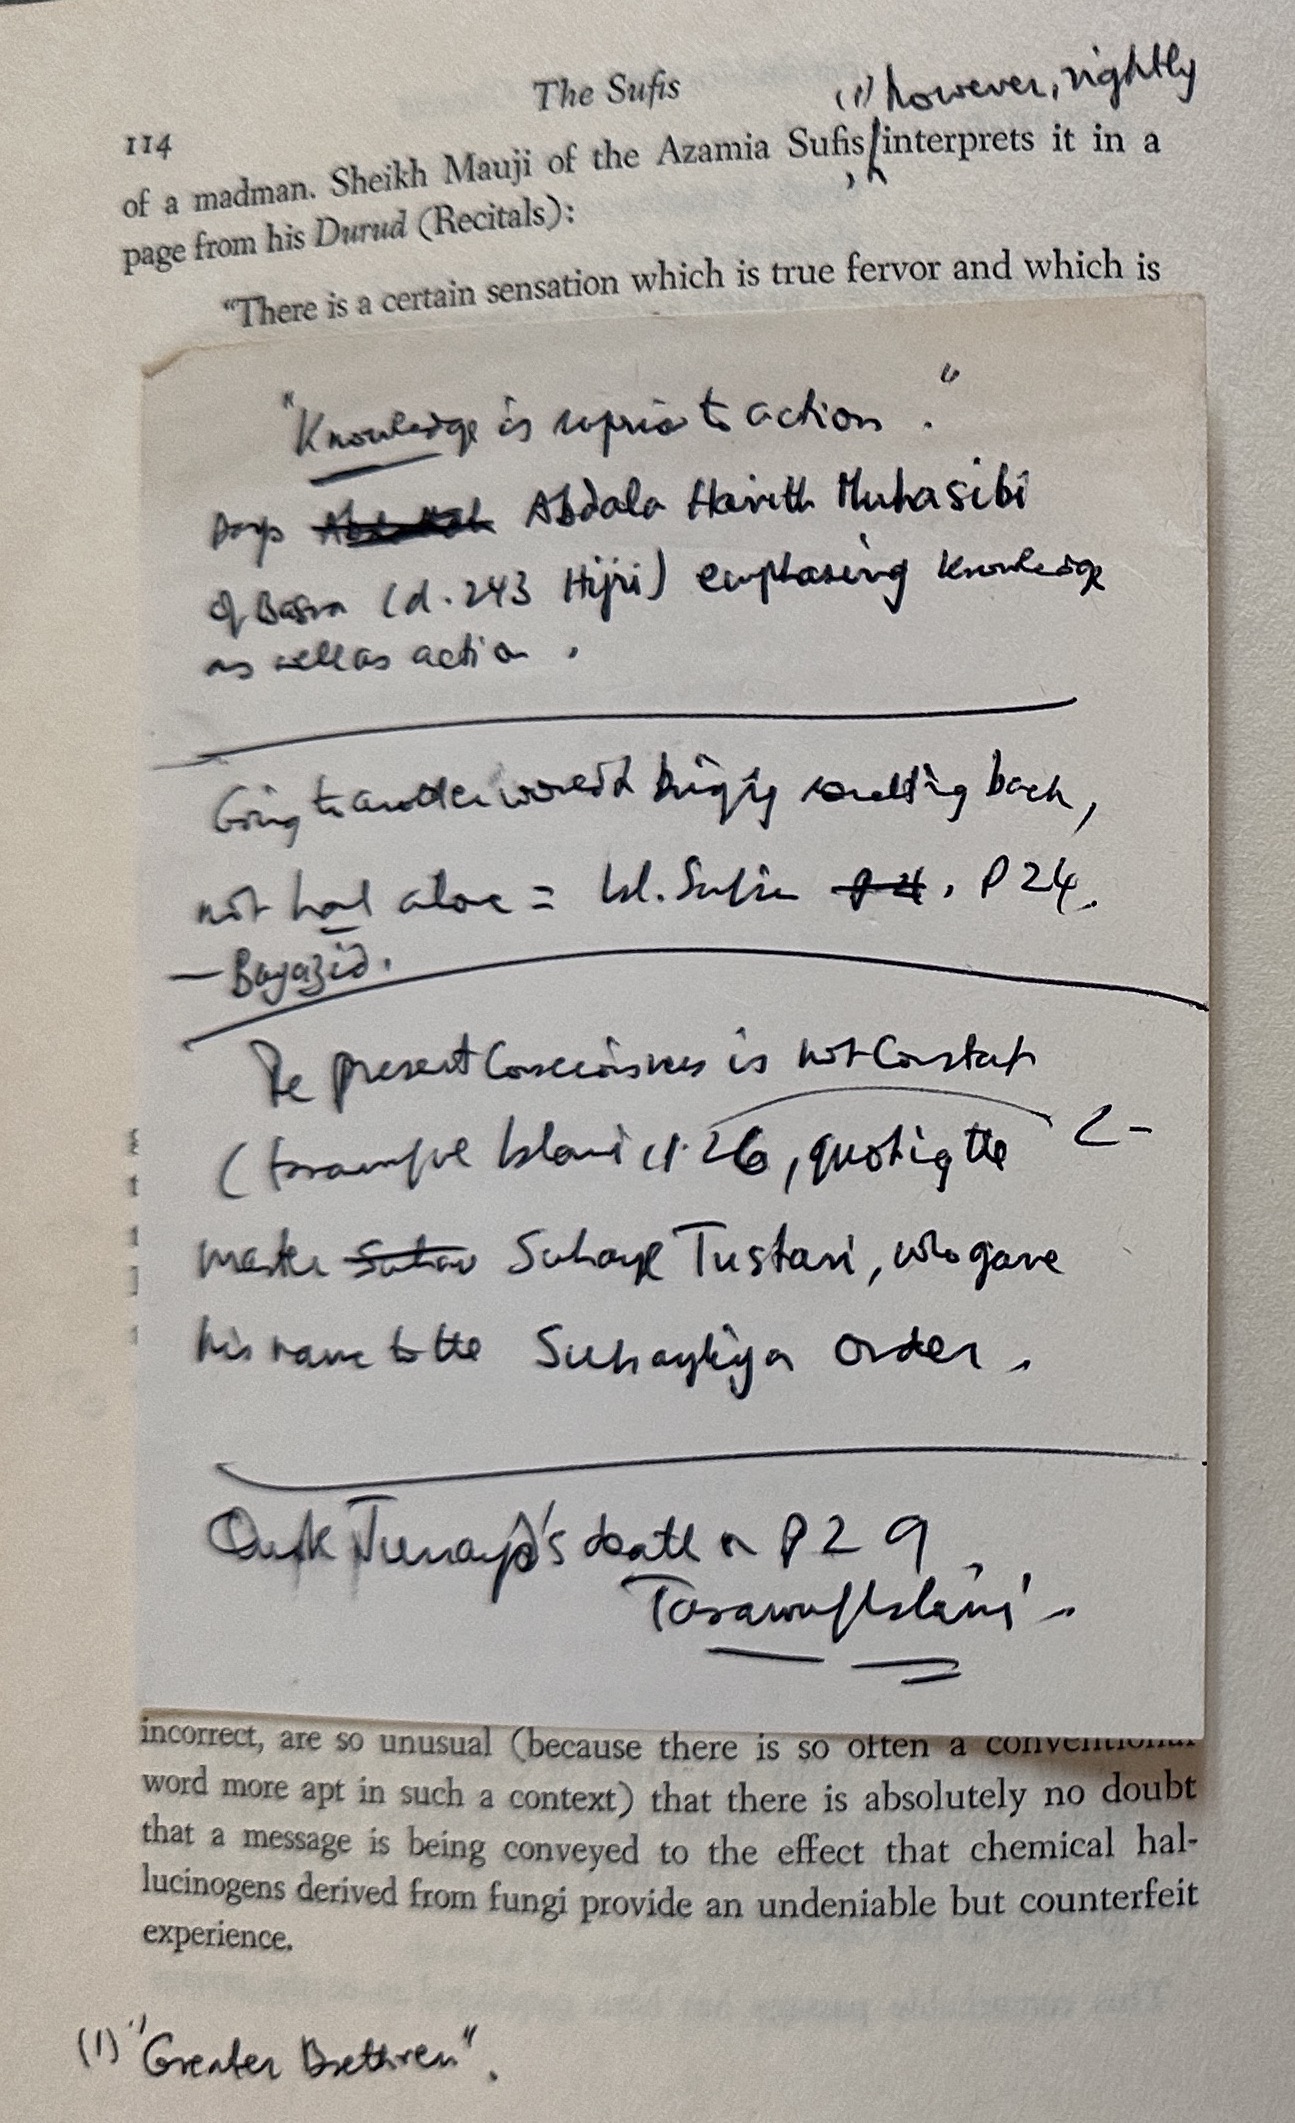 The Sufis
(1) however, rightly
114
of a madman. Sheikh Mauji of the Azamia Sufis, interprets it in a
page from his Durud (Recitals):
"There is a certain sensation which is true fervor and which is
"Knowledge is superior to action."
says Abdala Harith Muhasibi
of Basra (d. 243 Hijri) emphasing knowledge
as well as action.
Going to another world bringing something back,
not had alone = Isl. Sufism P 24.
— Bayazid.
The present Consciousness is not Constant
(Tasawwuf-i Islami p. 26, quoting the
master Suhayl Tustari, who gave
his name to the Suhayliya Order.
Quote Junayd's death on P 29
Tasawwuf Islami.
incorrect, are so unusual (because there is so often a conventional
word more apt in such a context) that there is absolutely no doubt
that a message is being conveyed to the effect that chemical hal-
lucinogens derived from fungi provide an undeniable but counterfeit
experience.
(1) "Greater Brethren".